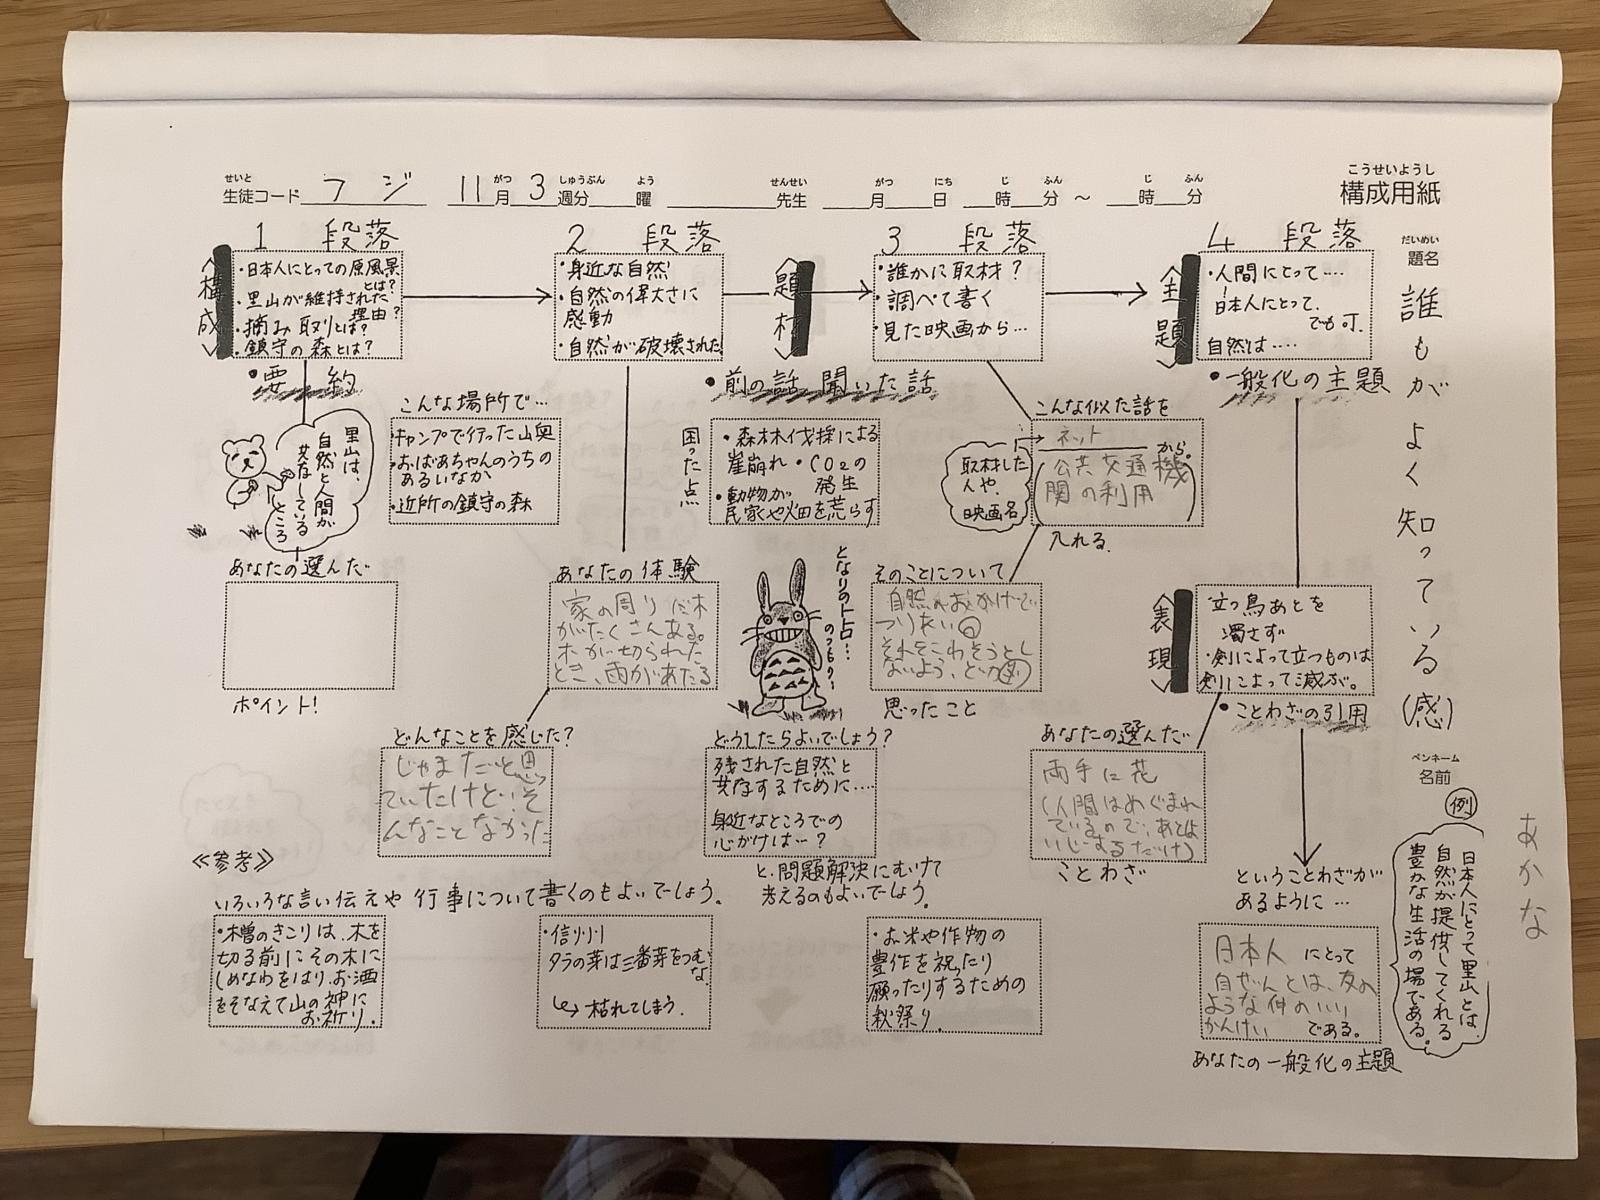 こうせいようし
構成用紙
せいと がつ しゅうぶん よう せんせい がつ にち じ ふん じ ふん
生徒コード フジ 11月3週分 曜 先生 月 日 時 分 ～ 時 分
だいめい
題名
誰もがよく知っている(感)
ペンネーム
名前
あかな
例
日本人にとって里山とは、
自然が提供してくれる
豊かな生活の場である。
1 段落
構成
・日本人にとっての原風景
とは?
・里山が維持された
理由?
・摘み取りとは?
・鎮守の森とは?
・要約
里山は、
自然と人間が
共存している
ところ
あなたの選んだ
ポイント!
2 段落
・身近な自然
・自然の偉大さに
感動
・自然が破壊された
こんな場所で…
・キャンプで行った山奥
・おばあちゃんのうちの
あるいなか
・近所の鎮守の森
あなたの体験
家の周りに木
がたくさんある。
木が切られた
とき、雨があたる
どんなことを感じた?
じゃまだと思っ
ていたけど…そ
んなことなかった
題材
・前の話 聞いた話
困った点
・森林伐採による
崖崩れ・CO2の
発生
・動物が
民家や畑を荒らす
となりのトトロ…
のつもり…
どうしたらよいでしょう?
残された自然と
共存するために…
身近なところでの
心がけは…?
と、問題解決にむけて
考えるのもよいでしょう。
3 段落
・誰かに取材?
・調べて書く
・見た映画から…
こんな似た話を
ネット
から。
(公共交通機
関の利用)
取材した
人や、
映画名
入れる.
そのことについて
自然のおかげで
つりあい
それをこわそうとし
ないよう、
思ったこと
あなたの選んだ
両手に花
(人間はめぐまれ
ているので、あとは
いじするだけ)
ことわざ
4 段落
主題
・人間にとって…
日本人にとって、
でも可.
自然は…
・一般化の主題
表現
・立つ鳥あとを
濁さず
・剣によって立つものは
剣によって滅ぶ。
・ことわざの引用
ということわざが
あるように…
日本人にとって
自ぜんとは、友の
ような仲のいい
かんけい である。
あなたの一般化の主題
≪参考≫
いろいろな言い伝えや行事について書くのもよいでしょう。
・木曽のきこりは、木を
切る前にその木に
しめなわをはり、お酒
をそなえて山の神に
お祈り.
・信州
タラの芽は三番芽をつむ
な
↳ 枯れてしまう.
・お米や作物の
豊作を祝ったり
願ったりするための
秋祭り.